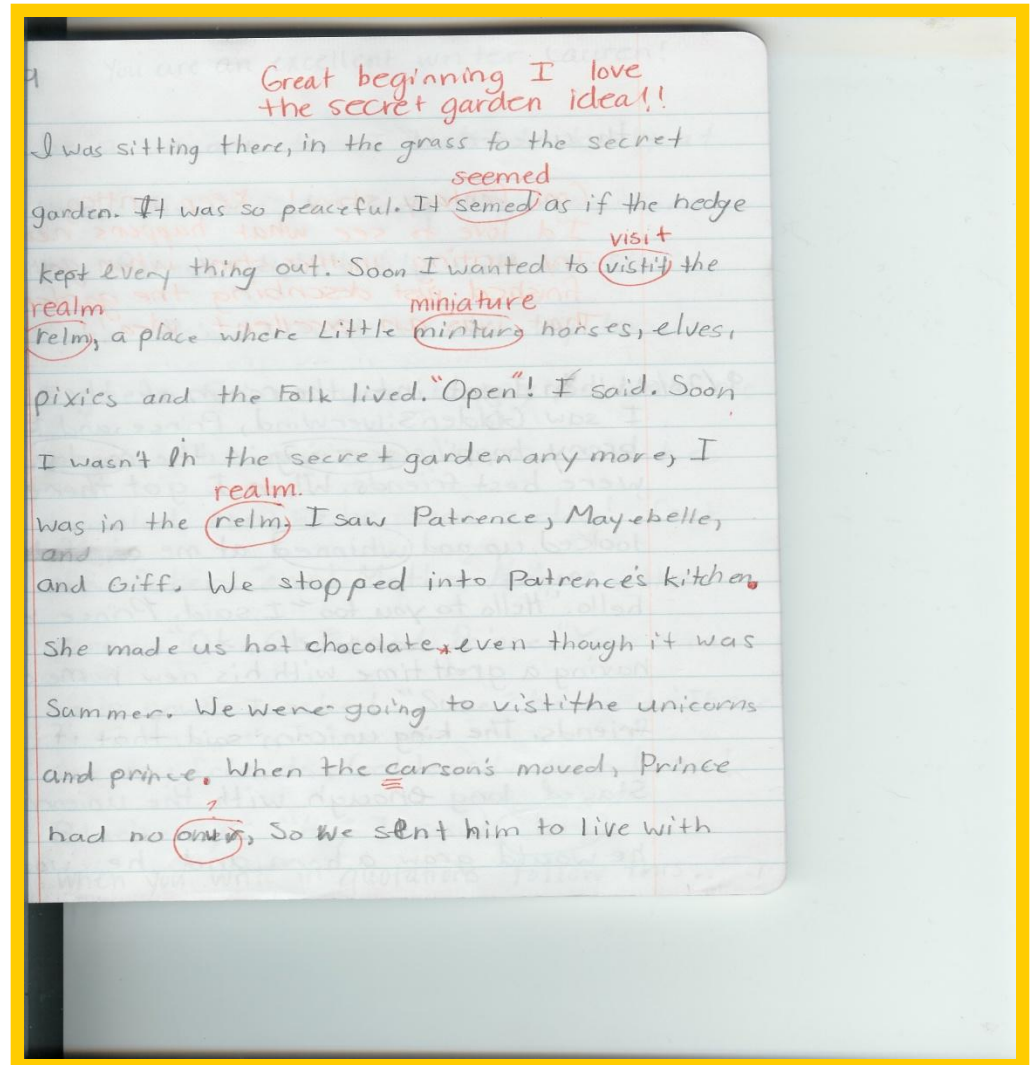 Great beginning I love
the secret garden idea!!
I was sitting there, in the grass to the secret
seemed
garden. It was so peaceful. It semed as if the hedge
visit
kept every thing out. Soon I wanted to vistit the
realm miniature
relm, a place where Little minture horses, elves,
pixies and the Folk lived. "Open"! I said. Soon
I wasn't in the secret garden any more, I
realm.
was in the relm, I saw Patrence, Mayebelle,
and
and Giff. We stopped into Patrence's kitchen.
She made us hot chocolate, even though it was
Summer. We were going to vistithe unicorns
and prince. When the carson's moved, Prince
?
had no So we sent him to live with